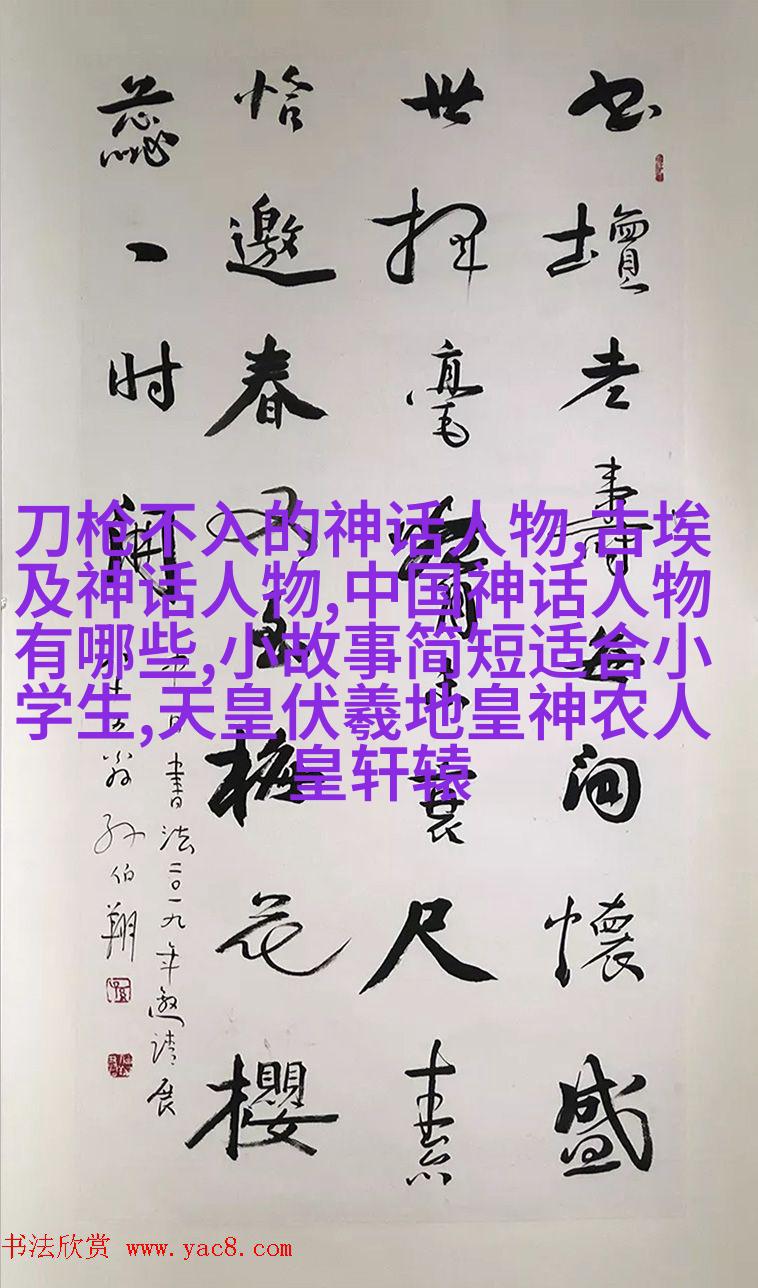 书壇老壽闲懷盛
世挥毫尺素
恰邀春梅花櫻
蕊一时開
中日書法二〇一九年邀请展
翁孙伯翔
刀枪不入的神话人物,古埃
及神话人物,中国神话人物
有哪些,小故事简短适合小
学生,天皇伏羲地皇神农人
皇轩辕
书法欣赏 www.yac8.com